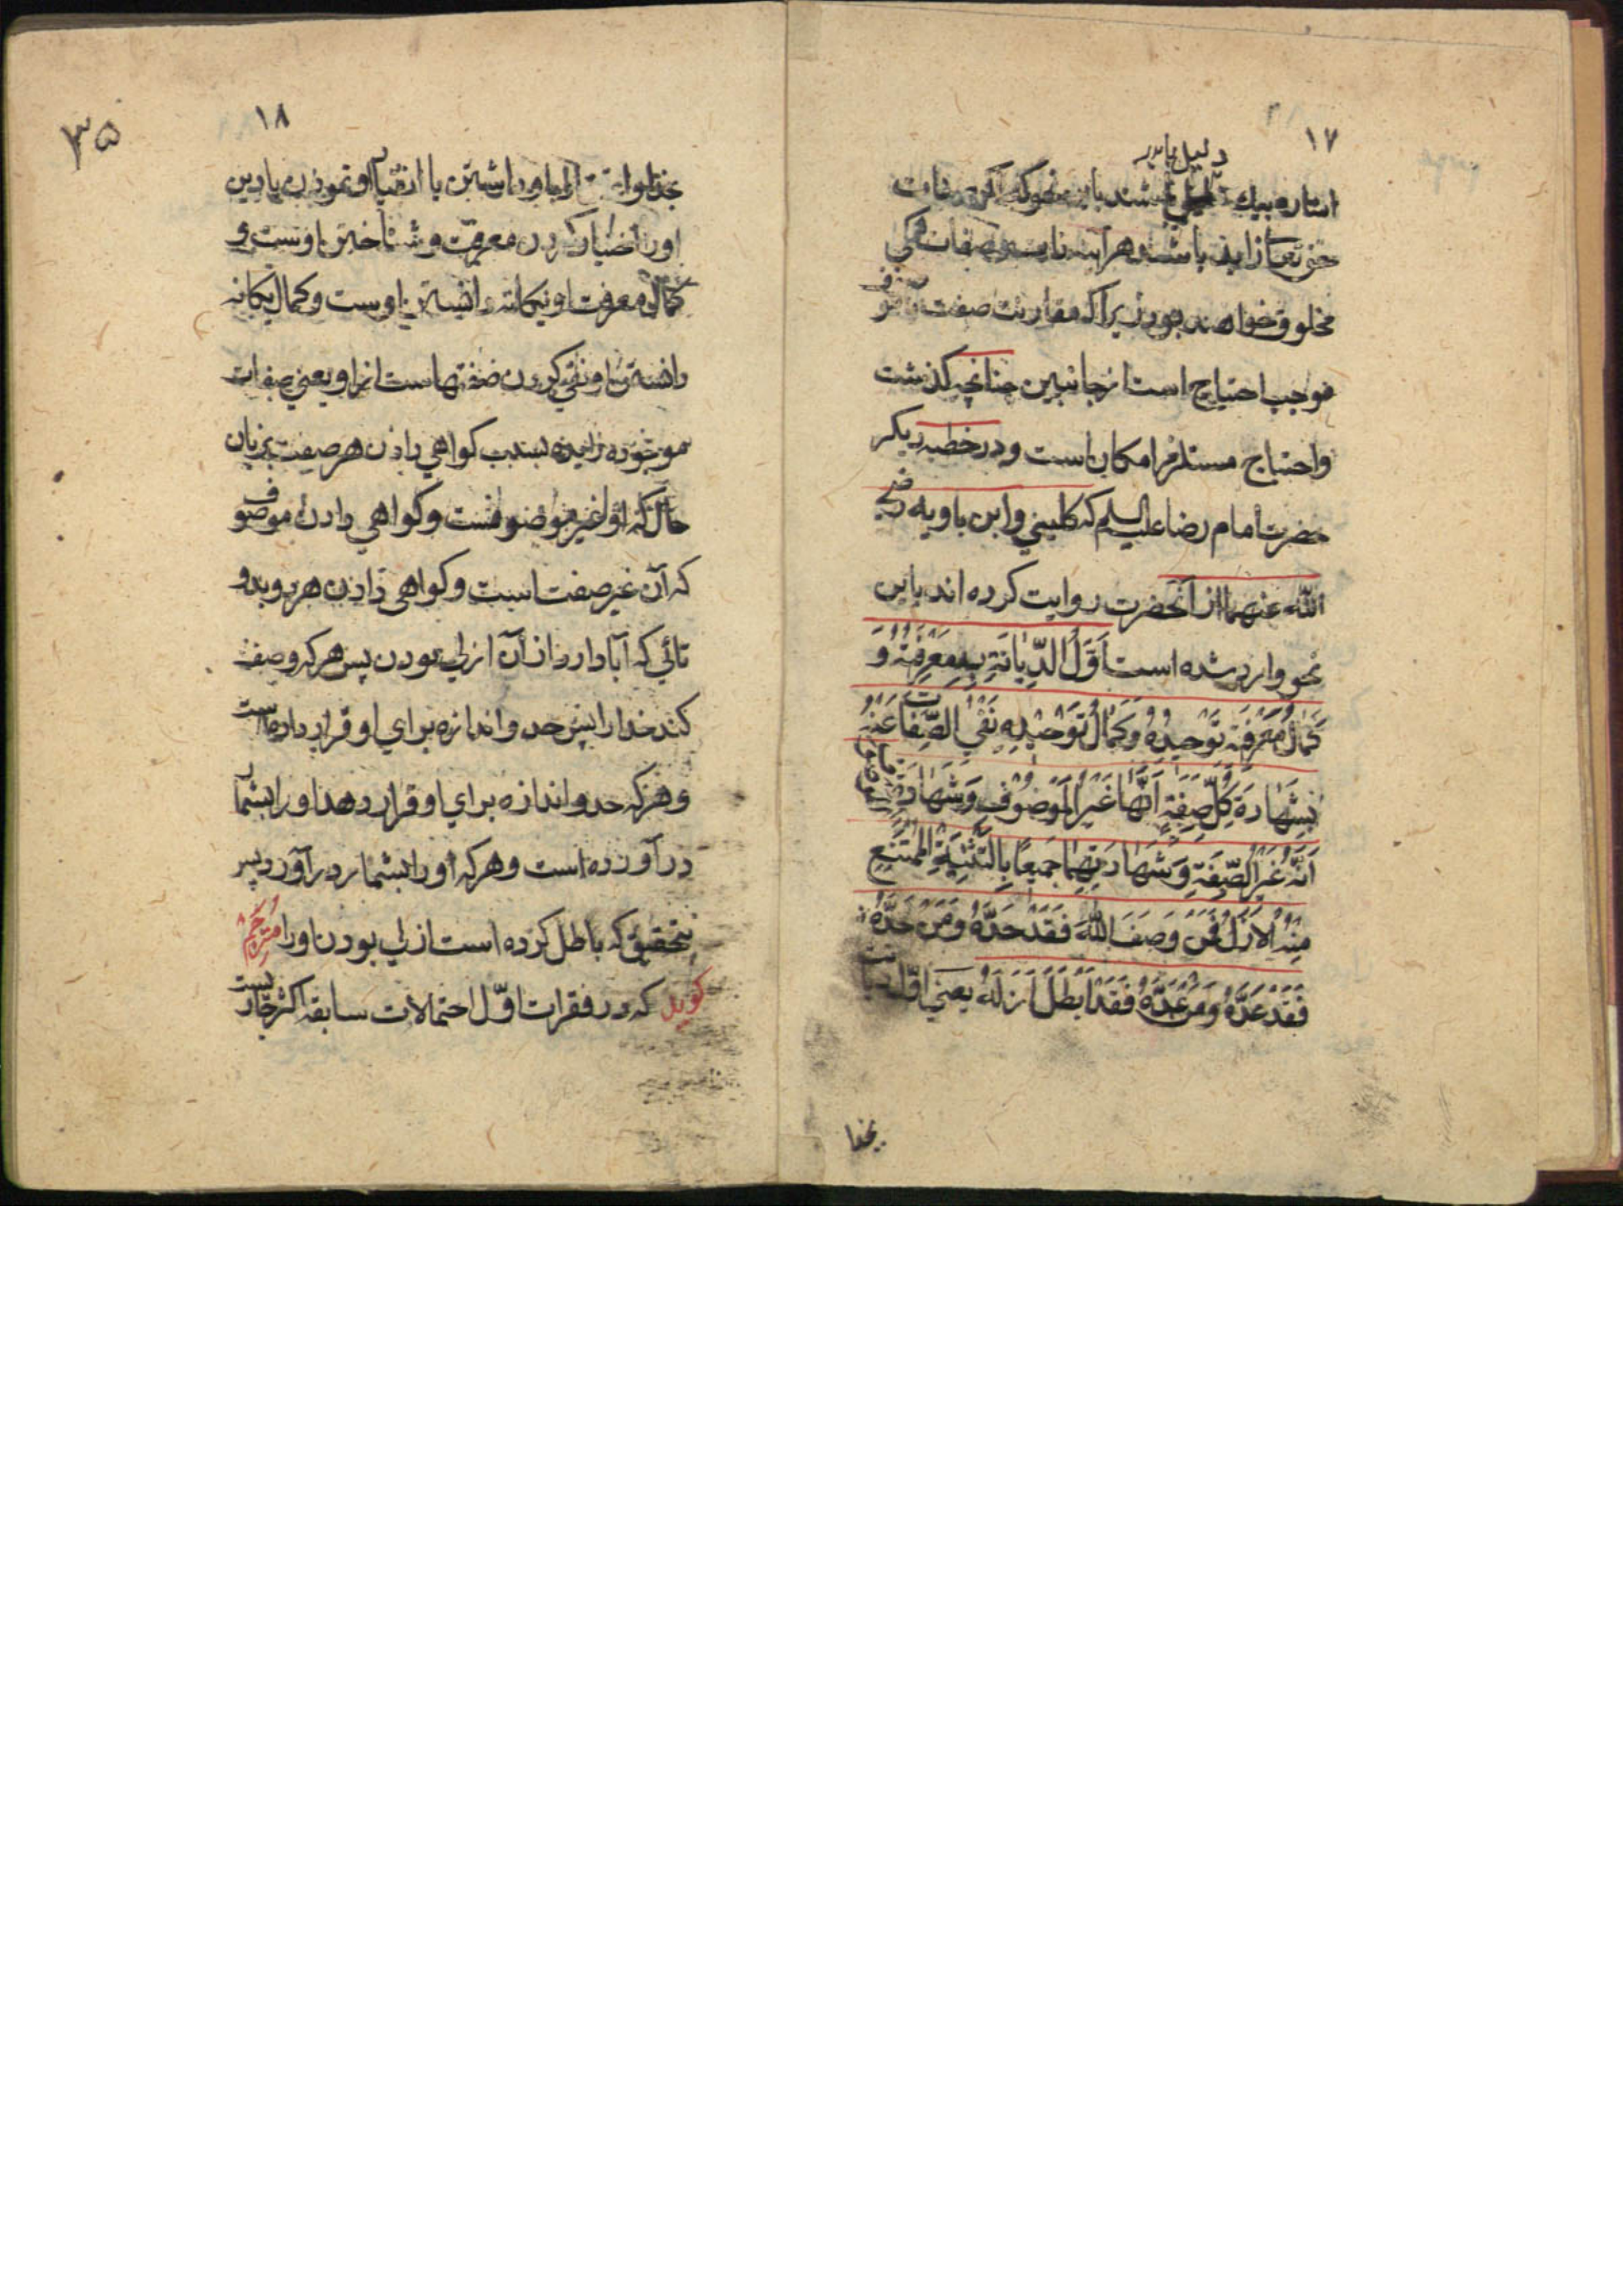 ۱۷
دلیل
اشاره بیک دلیل باشند باین نحو که اگر صفات
حق تعالی زاید باشد هرآینه ذات و صفات همگی
مخلوق خواهند بود زیرا که مقارنت صفت و موصوف
موجب احتیاج است از جانبین چنانچه گذشت
و احتیاج مستلزم امکان است و در خطبه دیگر
حضرت امام رضا علیه السلم که کلینی و ابن بابویه رضی
الله عنهما از آنحضرت روایت کرده اند باین
نحو وارد شده است اَوَّلُ الدِّیانَةِ بِهِ مَعْرِفَتُهُ وَ
کَمالُ مَعْرِفَتِهِ تَوْحیدُهُ وَ کَمالُ تَوْحیدِهِ نَفْیُ الصِّفاتِ عَنْهُ
بِشَهادَةِ کُلِّ صِفَةٍ اَنَّها غَیْرُ الْمَوْصُوفِ وَ شَهادَةِ الموصوف
اَنَّهُ غَیْرُ الصِّفَةِ وَ شَهادَتِهِما جَمیعًا بِالتَّثْنِیَةِ الْمُمْتَنِعِ
مِنْهُ الْاَزَلُ فَمَنْ وَصَفَ اللهَ فَقَدْ حَدَّهُ وَ مَنْ حَدَّهُ
فَقَدْ عَدَّهُ وَ مَنْ عَدَّهُ فَقَدْ اَبْطَلَ اَزَلَهُ یعنی اوّل دیانت
بخدا
۱۸
۳۵
بخدا و اعتقاد باو داشتن یا انقیاد او نمودن یا دین
او را اختیار کردن معرفت و شناختن اوست و
کمال معرفت او یگانه دانستن اوست و کمال یگانه
دانستن او نفی کردن صفتهاست از او یعنی صفات
موجوده زایده بسبب گواهی دادن هر صفت بزبان
حال که او غیر موصوفست و گواهی دادن موصوف
که آن غیر صفت است و گواهی دادن هر دو بدو
تائی که آبا دارد از آن ازلی بودن پس هر که وصف
کند خدا را پس حد و اندازه برای او قرار داده است
و هر که حد و اندازه برای او قرار دهد او را بشمار
در آورده است و هر که او را بشمار در آورد پس
بتحقیق که باطل کرده است ازلی بودن او را مترجم
گوید که در فقرات اوّل احتمالات سابقه اکثر جاریست